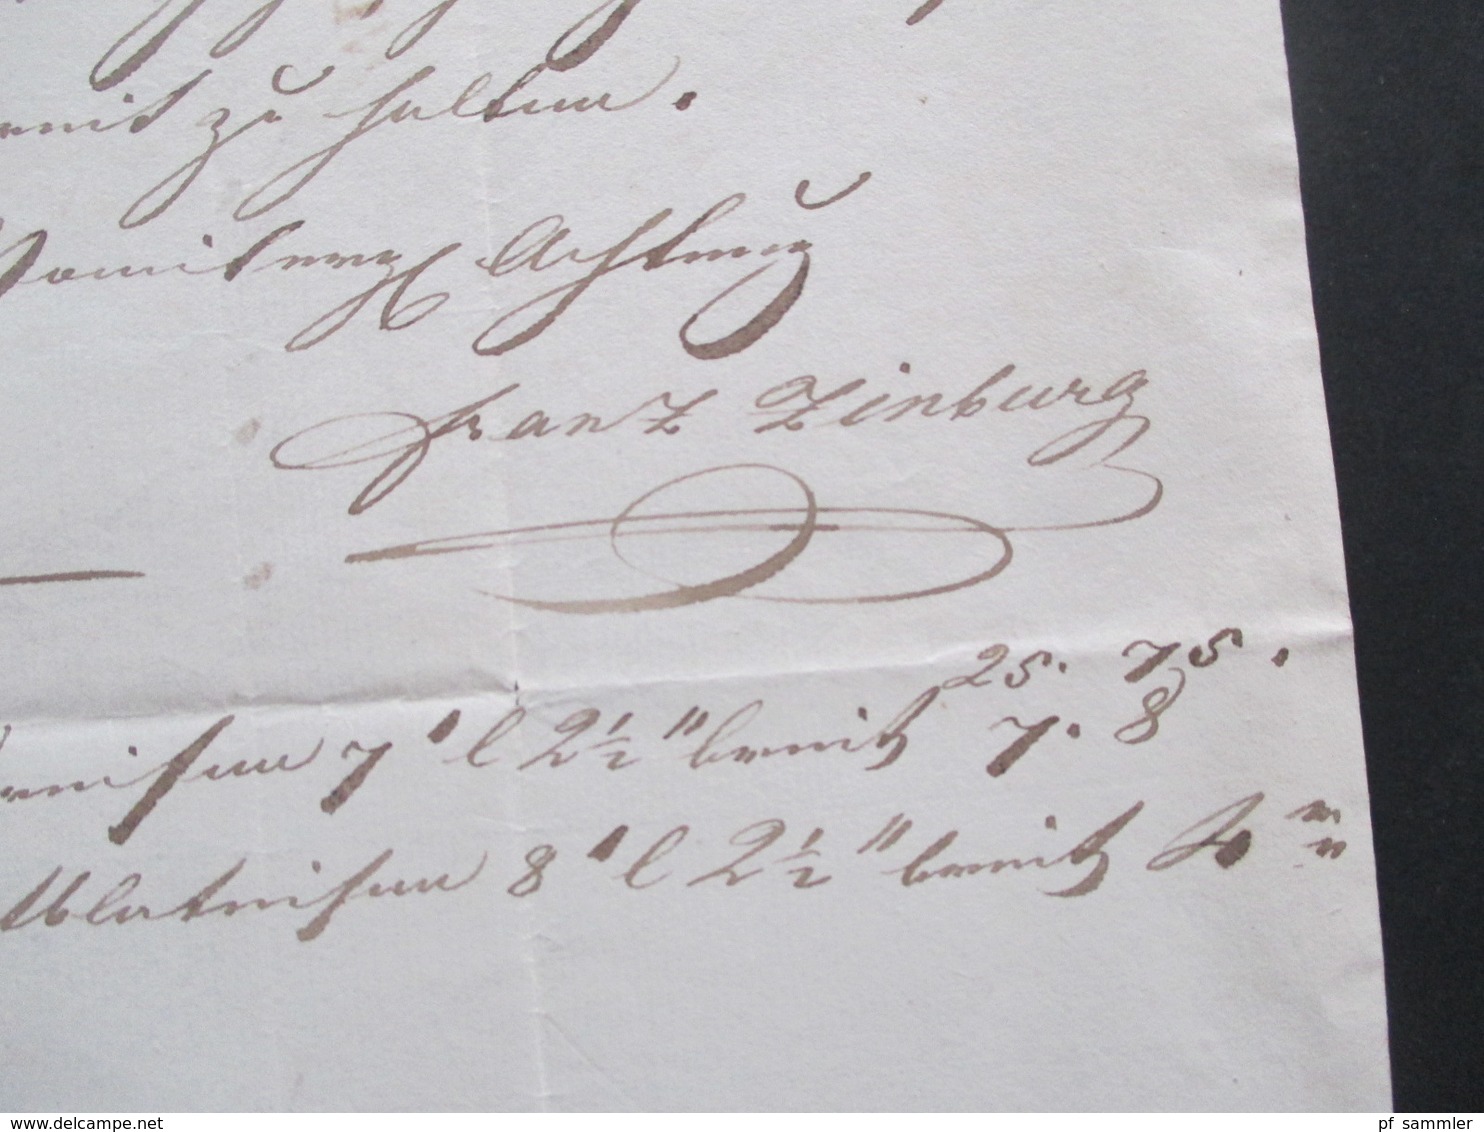 bereit zu halten.
Achtung
Franz Zinburg
25. 75.
eisen 7' l 2½" breit 7. 8
blateisen 8' l 2½" breit
www.delcampe.net
pf_sammler